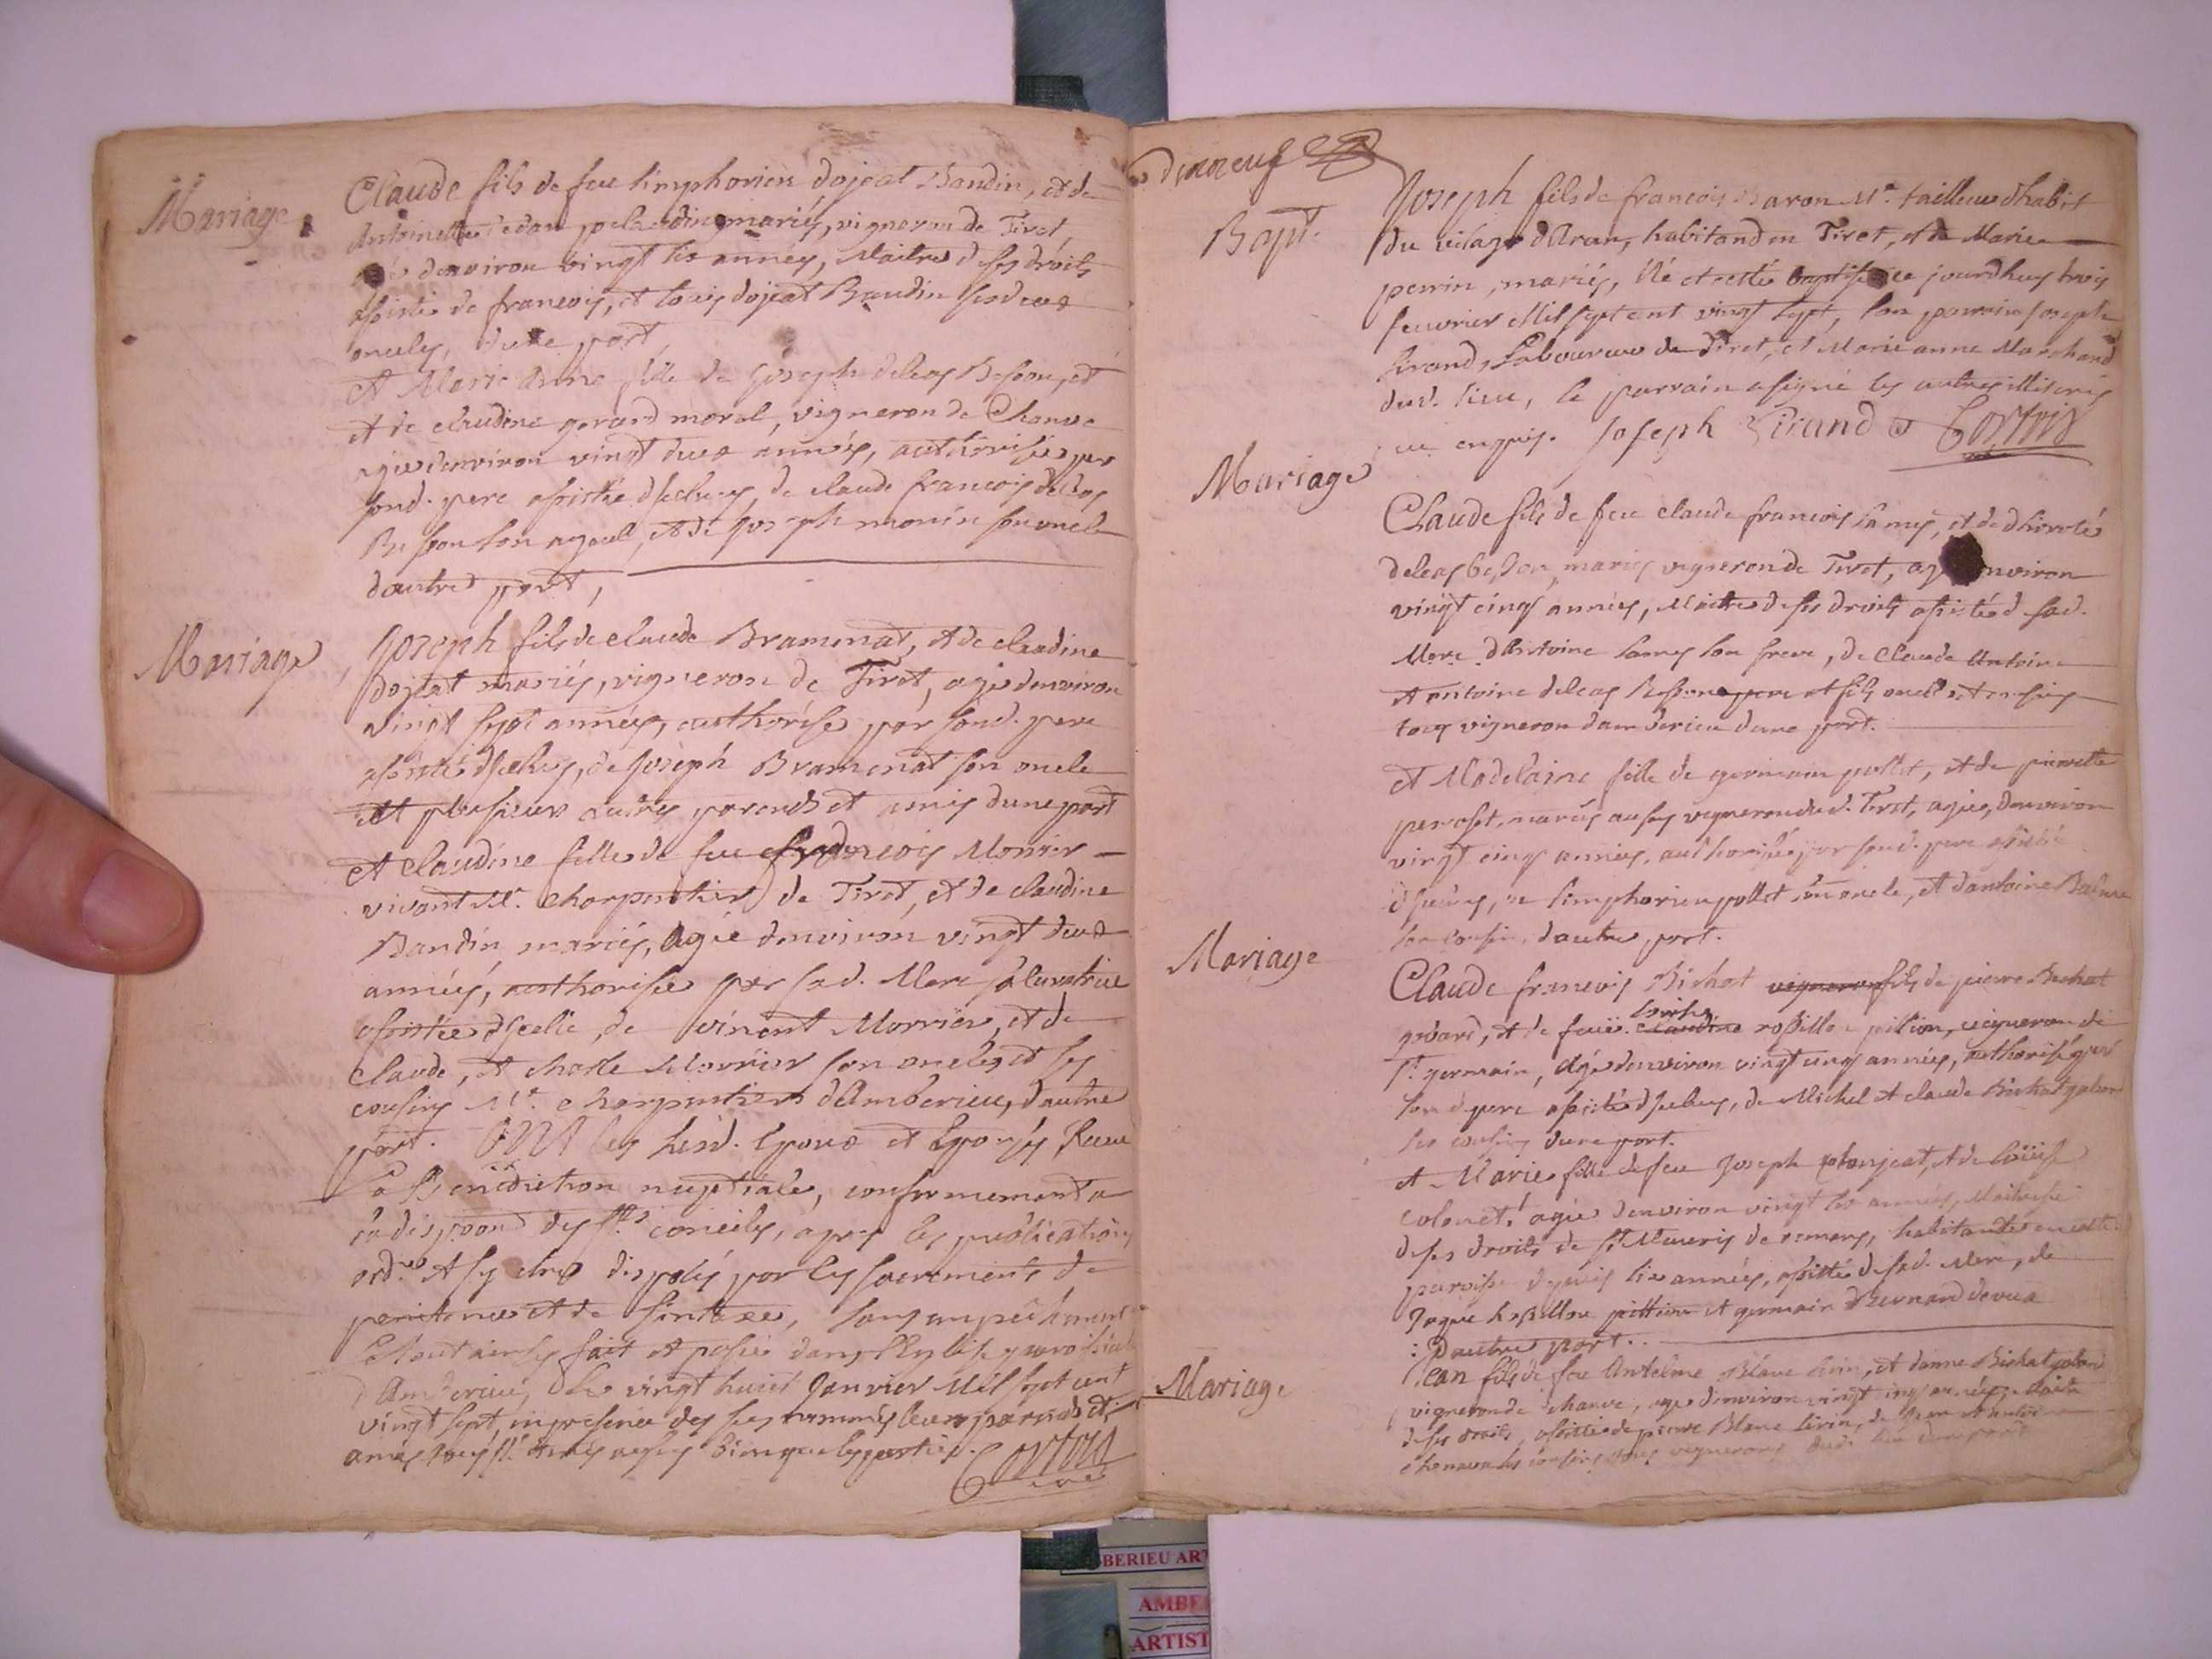 Mariage
Claude fils de feu simphorien dojeat Bandin, et de
Antoinette mariés, vigneron de Tiret,
denviron vingt six années, Maitre de ses droits
assisté de francois, et louis dojeat Bandin ses deux
oncles, dune part,
et Marie Anne fille de Joseph deleas Besson, et
et de claudine gerard moral, vigneron de Chauve
agée denviron vingt deux années, authorisée par
sond. pere assistée diceluy, de claude francois deleas
Besson son ayeul, et de Joseph monin son oncle
dautre part,
Mariage
Joseph fils de claude Bramenat, et de claudine
dojeat mariés, vigneron de Tiret, agé denviron
vingt sept années, authorisé par sond. pere
assisté diceluy, de Joseph Bramenat son oncle
et plusieurs autres parends et amis dune part
et claudine fille de feu francois Morrier
vivant Mr. charpentier de Tiret, et de claudine
Bandin mariés, agée denviron vingt deux
années, authorisée par sad. Mere
assistée dicelle, de vincent Morrier, et de
claude, et Morrier son oncle et ses
cousins Mr. charpentiers dAmberieu, dautre
part. ONT les susd. Epoux et Epouses Receu
la Benediction nuptiale, conformement a
la disp.on des Sts conciles, apres les publications
ord.res et sy etre disposés par les sacrements de
penitence et de sans empechement
Le tout ainsy fait et passé dans lEglise paroissiale
dAmberieu, le vingt huict Janvier Mil sept cent
vingt sept, en presence des susnommés leurs parends et
amis bien que les parties. Cortois
curé
dixneuf
Bapt.
Joseph fils de francois Baron Mr. tailleur dhabit
du vilage dAran, habitand en Tiret, et de Marie
perrin, mariés, Né et esté baptisé ce jourdhuy trois
feuvrier Mil sept cent vingt sept, son parrain Joseph
Sirand, Laboureur de Tiret, et Marie anne Marchand
dud. lieu, le parrain a signé les autres illiterés
enquis. Joseph Sirand Cortois
Mariage
Claude fils de feu claude francois lamy, et de dhorotée
deleas besson, mariés vigneron de Tiret, agé environ
vingt cinq années, Maitre de ses droits assisté de sad.
Mere dAntoine lamy son frere, de Claude Antoine
et antoine deleas Besson pere et fils oncle et cousins
tous vigneron damberieu dune part.
et Madelaine fille de germain pollet, et de pierrette
peroset, mariés aussy vigneron dud. Tiret, agée, denviron
vingt cinq années, authorisée par sond. pere assistée
dicelluy, de simphorien pollet son oncle, et dantoine
son cousin, dautre part.
Mariage
Claude francois Bichat vigneron fils de pierre Bichat
gobard, et de feüe claudine rossillon pition, vigneron de
St. germain, agé denviron vingt cinq années, authorisé par
son d. pere assisté dicelluy, de Michel et claude Bichat gobard
ses cousins dune part.
et Marie fille de feu Joseph et de loüise
colonet, agée denviron vingt six années, Maitresse
de ses droits de St Meuris de remens, habitante en cette
paroisse depuis six années, assistée de sad. Mere, de
Jaque rossillon pittion et germain
dautre part.
Mariage
Jean fils de feu Antelme Blanc sirin, et danne Bichat gobard
vigneron de chauve, agé denviron vingt cinq années, Maitre
de ses droits, assisté de pierre Blanc sirin, de Jean Antoine
cousins tous vignerons dud. lieu dune part
BERIEU ART
AMBE
ARTIST